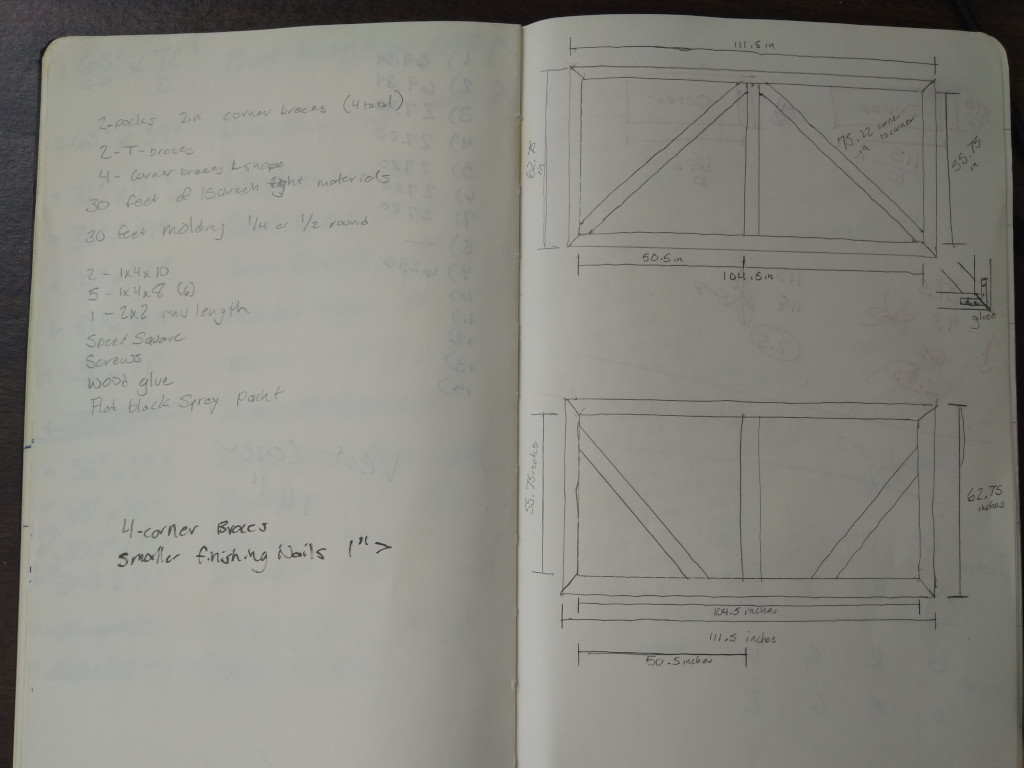 2-packs 2in corner braces (4 total)
2-T-braces
4- corner braces L-shape
30 feet of screen materials
30 feet molding 1/4 or 1/2 round
2 - 1x4x10
5 - 1x4x8 (6)
1 - 2x2 length
Speed Square
Screws
Wood glue
Flat black Spray paint
4-corner Braces
smaller finishing Nails 1" >
111.5 in
62.75 in
75.22 corner to corner in
55.75 in
50.5 in
104.5 in
glue
55.75 inches
62.75 inches
104.5 inches
111.5 inches
50.5 inches